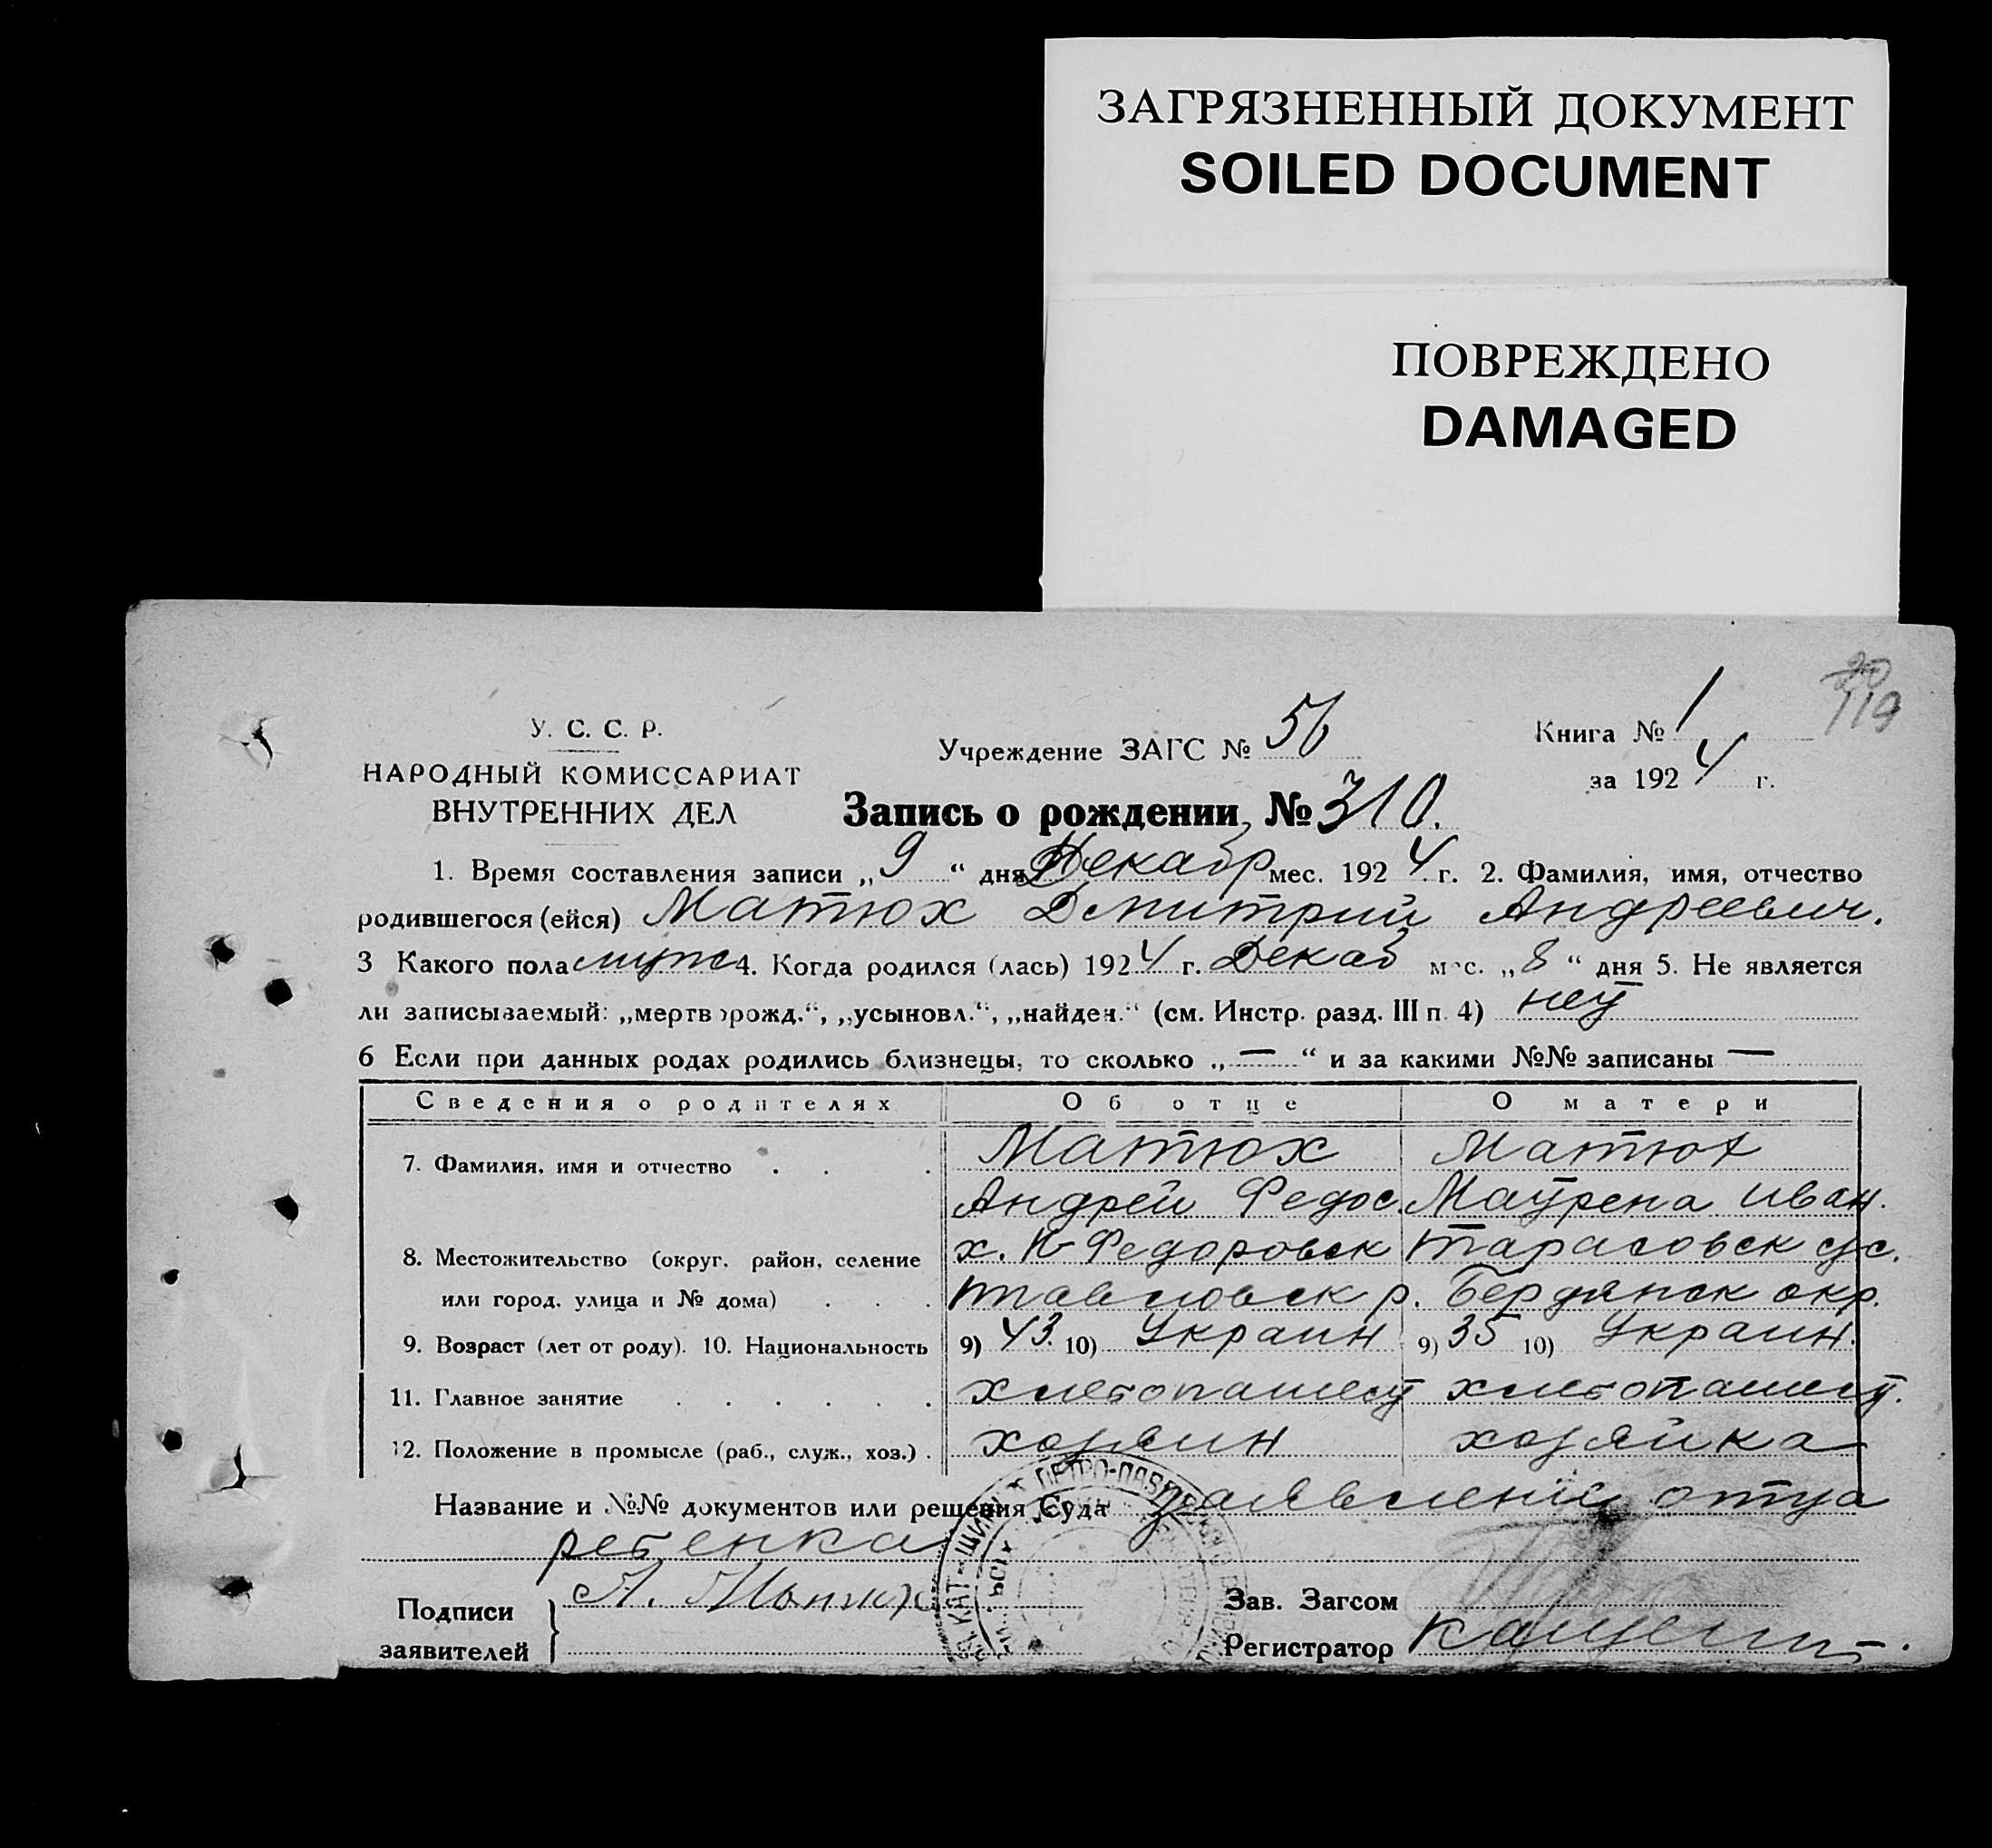 ЗАГРЯЗНЕННЫЙ ДОКУМЕНТ
SOILED DOCUMENT
ПОВРЕЖДЕНО
DAMAGED
20
119
У. С. С. Р.
НАРОДНЫЙ КОМИССАРИАТ
ВНУТРЕННИХ ДЕЛ
Учреждение ЗАГС № 56
Книга № 1
за 1924 г.
Запись о рождении, № 310.
1. Время составления записи „9“ дня Декабр мес. 1924 г. 2. Фамилия, имя, отчество
родившегося (ейся) Матюх Дмитрий Андреевич.
3 Какого пола муж 4. Когда родился (лась) 1924 г. Декаб мес. „8“ дня 5. Не является
ли записываемый: „мертворожд.“, „усыновл.“, „найден.“ (см. Инстр. разд. III п. 4) нет
6 Если при данных родах родились близнецы, то сколько „—“ и за какими №№ записаны —
Сведения о родителях Об отце О матери
7. Фамилия, имя и отчество Матюх Матюх
Андрей Федос. Маурена Иван.
8. Местожительство (округ, район, селение х. Федоровск Тарасовск с/с.
или город, улица и № дома) р. Бердянск окр.
9. Возраст (лет от роду). 10. Национальность 9) 43. 10) Украин 9) 35 10) Украин.
11. Главное занятие хлебопашест хлебопашест.
12. Положение в промысле (раб., служ., хоз.) хозяин хозяйка
Название и №№ документов или решения Суда заявление отца
ребенка
Подписи заявителей А. Матюх
Зав. Загсом
Регистратор
ПЕТРО-ПАВЛ